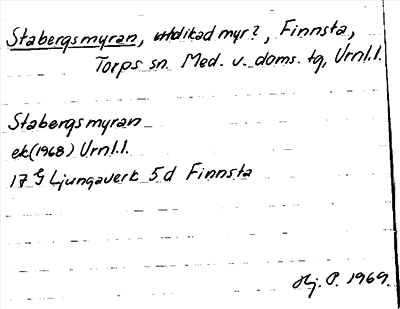 Stabergsmyran, utdikad myr?, Finnsta,
Torps sn. Med. v. doms. tg, Urnl.l.
Stabergsmyran
ek(1968) Urnl.l.
17 G Ljungaverk 5d Finnsta
Hj. P. 1969.